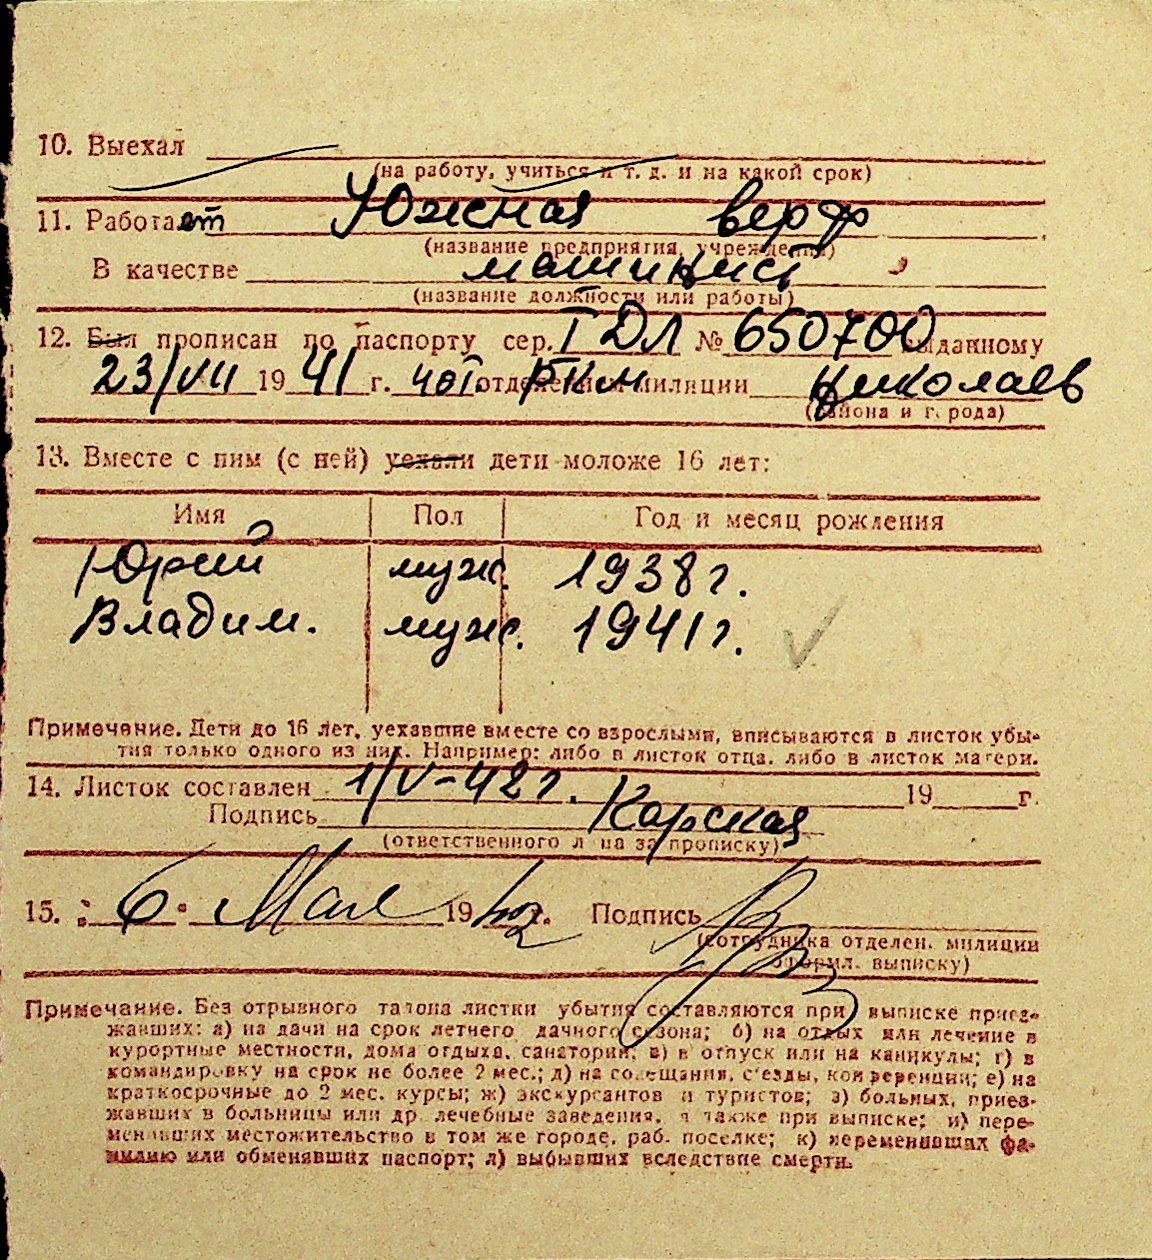 10. Выехал
(на работу, учиться и т. д. и на какой срок)
11. Работает Южная верфь
(название предприятия, учреждения)
В качестве машинист
(название должности или работы)
12. Был прописан по паспорту сер. I ДЛ № 650700 выданному
23/VII 1941 г. 4 от. отделением РКМ милиции Николаев
(района и города)
13. Вместе с ним (с ней) уехали дети моложе 16 лет:
Имя Пол Год и месяц рождения
Юрий муж. 1938 г.
Владим. муж. 1941 г.
Примечание. Дети до 16 лет, уехавшие вместе со взрослыми, вписываются в листок убы-
тия только одного из них. Например: либо в листок отца, либо в листок матери.
14. Листок составлен 1/V-42 г. 19 г.
Подпись Карская
(ответственного лица за прописку)
15. "6" Мая 1942 г. Подпись
(сотрудника отделен. милиции
оформл. выписку)
Примечание. Без отрывного талона листки убытия составляются при выписке приез-
жавших: а) на дачи на срок летнего дачного сезона; б) на отдых или лечение в
курортные местности, дома отдыха, санатории; в) в отпуск или на каникулы; г) в
командировку на срок не более 2 мес.; д) на совещания, с'езды, конференции; е) на
краткосрочные до 2 мес. курсы; ж) экскурсантов и туристов; з) больных, приез-
жавших в больницы или др. лечебные заведения, а также при выписке; и) пере-
менивших местожительство в том же городе, раб. поселке; к) переменивших фа-
милию или обменявших паспорт; л) выбывших вследствие смерти.